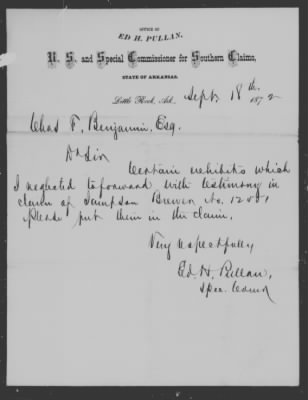 OFFICE OF
ED H. PULLAN,
U. S. and Special Commissioner for Southern Claims,
STATE OF ARKANSAS.
Little Rock, Ark., Sept 18th 1872
Chas F. Benjamin, Esq.
Dr Sir
Certain exhibits which
I neglected to forward with testimony in
claim of Sampson Brewer No.
please put them in the claim.
Very respectfully
Ed. H. Pullan,
Spec. Comr